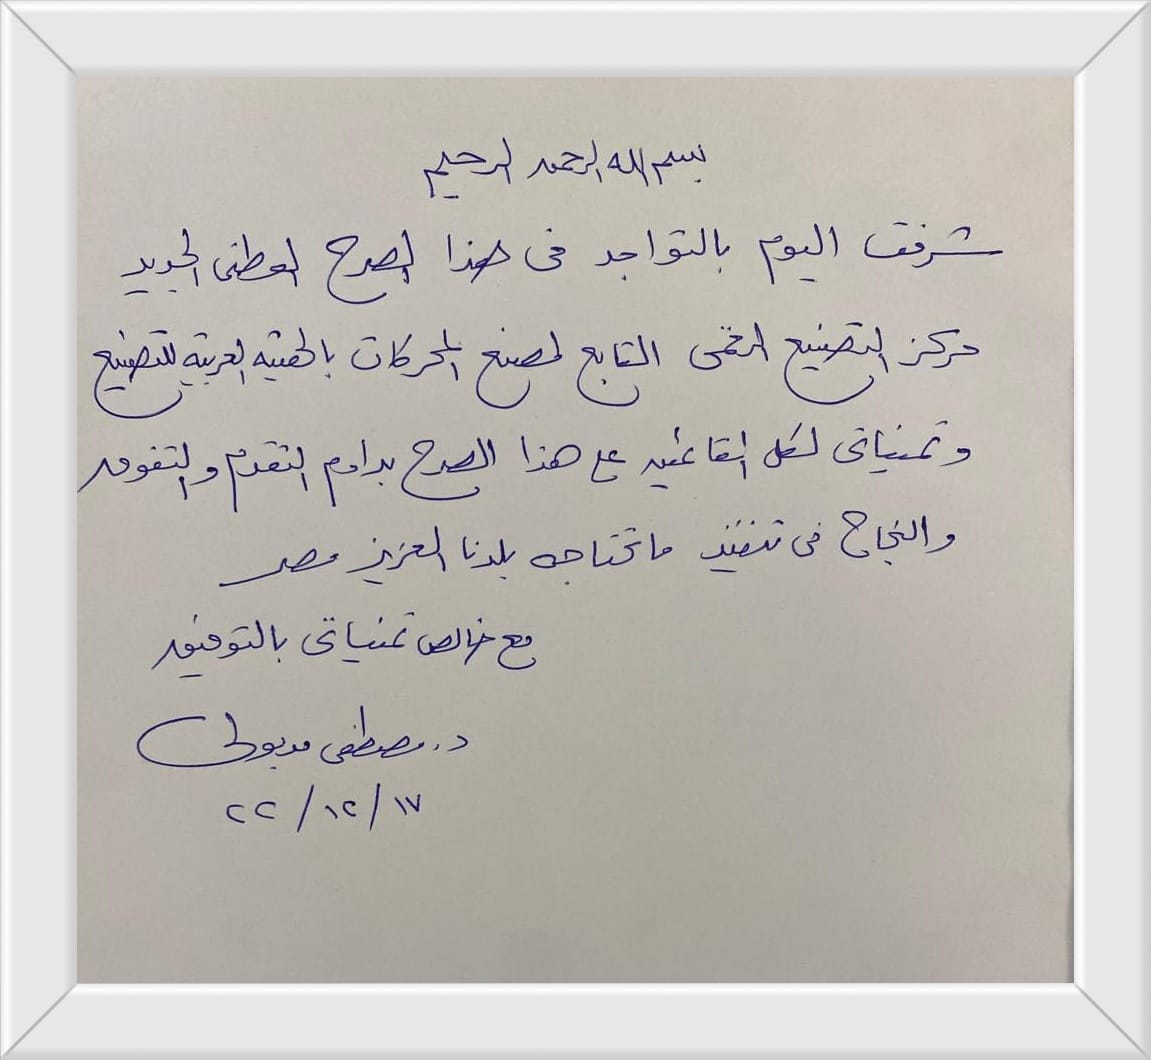 بسم الله الرحمن الرحيم
شرفت اليوم بالتواجد فى هذا الصرح الوطنى الجديد
مركز التصنيع الرقمى التابع لمصنع المحركات بالهيئة العربية للتصنيع
وتمنياتى لكل القائمين على هذا الصرح بدوام التقدم والتفوق
والنجاح فى تنفيذ ما تحتاجه بلدنا العزيز مصر
مع خالص تمنياتى بالتوفيق
د. مصطفى مدبولى
١٧/١٢/٢٢